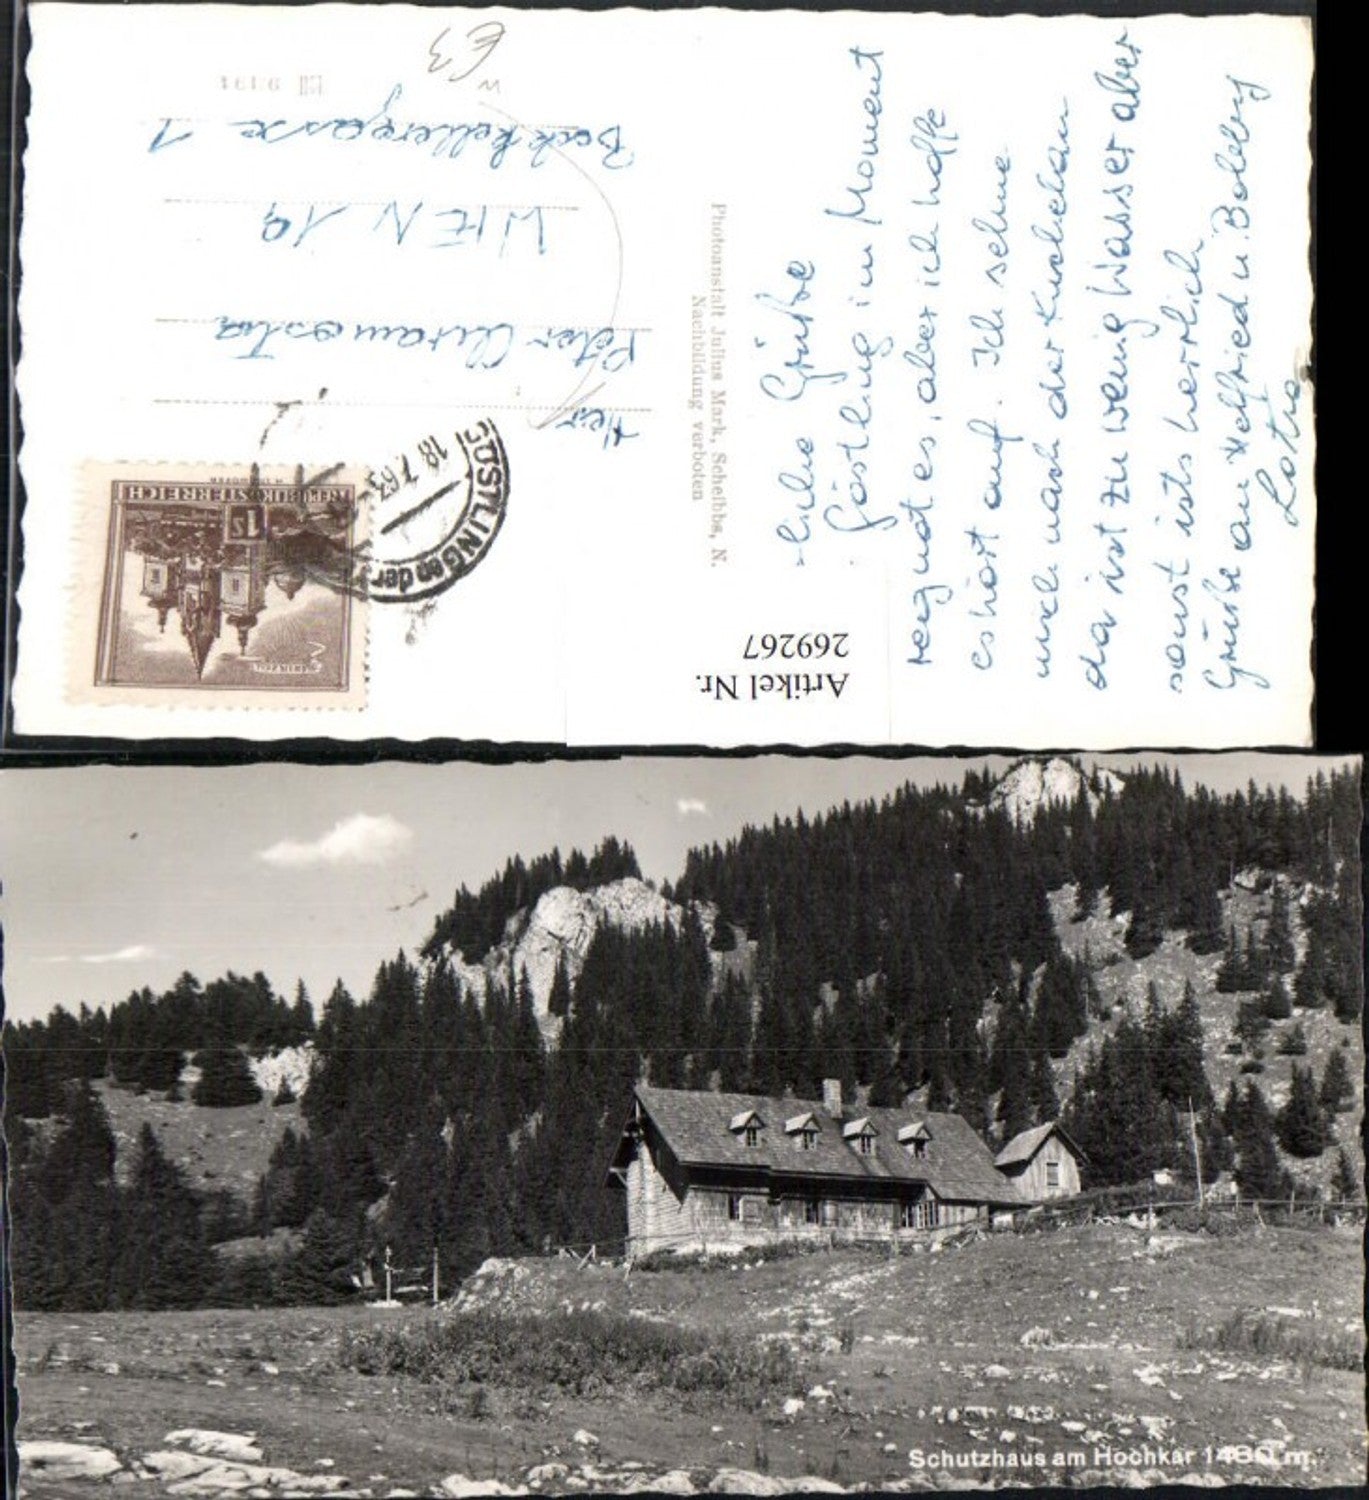 Liebe Grüße
Göstling im Moment
regnet es, aber ich hoffe
es hört auf. Ich sehne
mich nach der
da ist zu wenig Wasser aber
sonst ists herrlich
Grüße an Helfried u.
Photoanstalt Julius Mark, Scheibbs, N.
Nachbildung verboten
GÖSTLING an der
18.7.63
MARIAZELL
12
REPUBLIK ÖSTERREICH
Herr
Peter
WIEN 19
1
€3
Artikel Nr.
269267
Schutzhaus am Hochkar 1480 m.